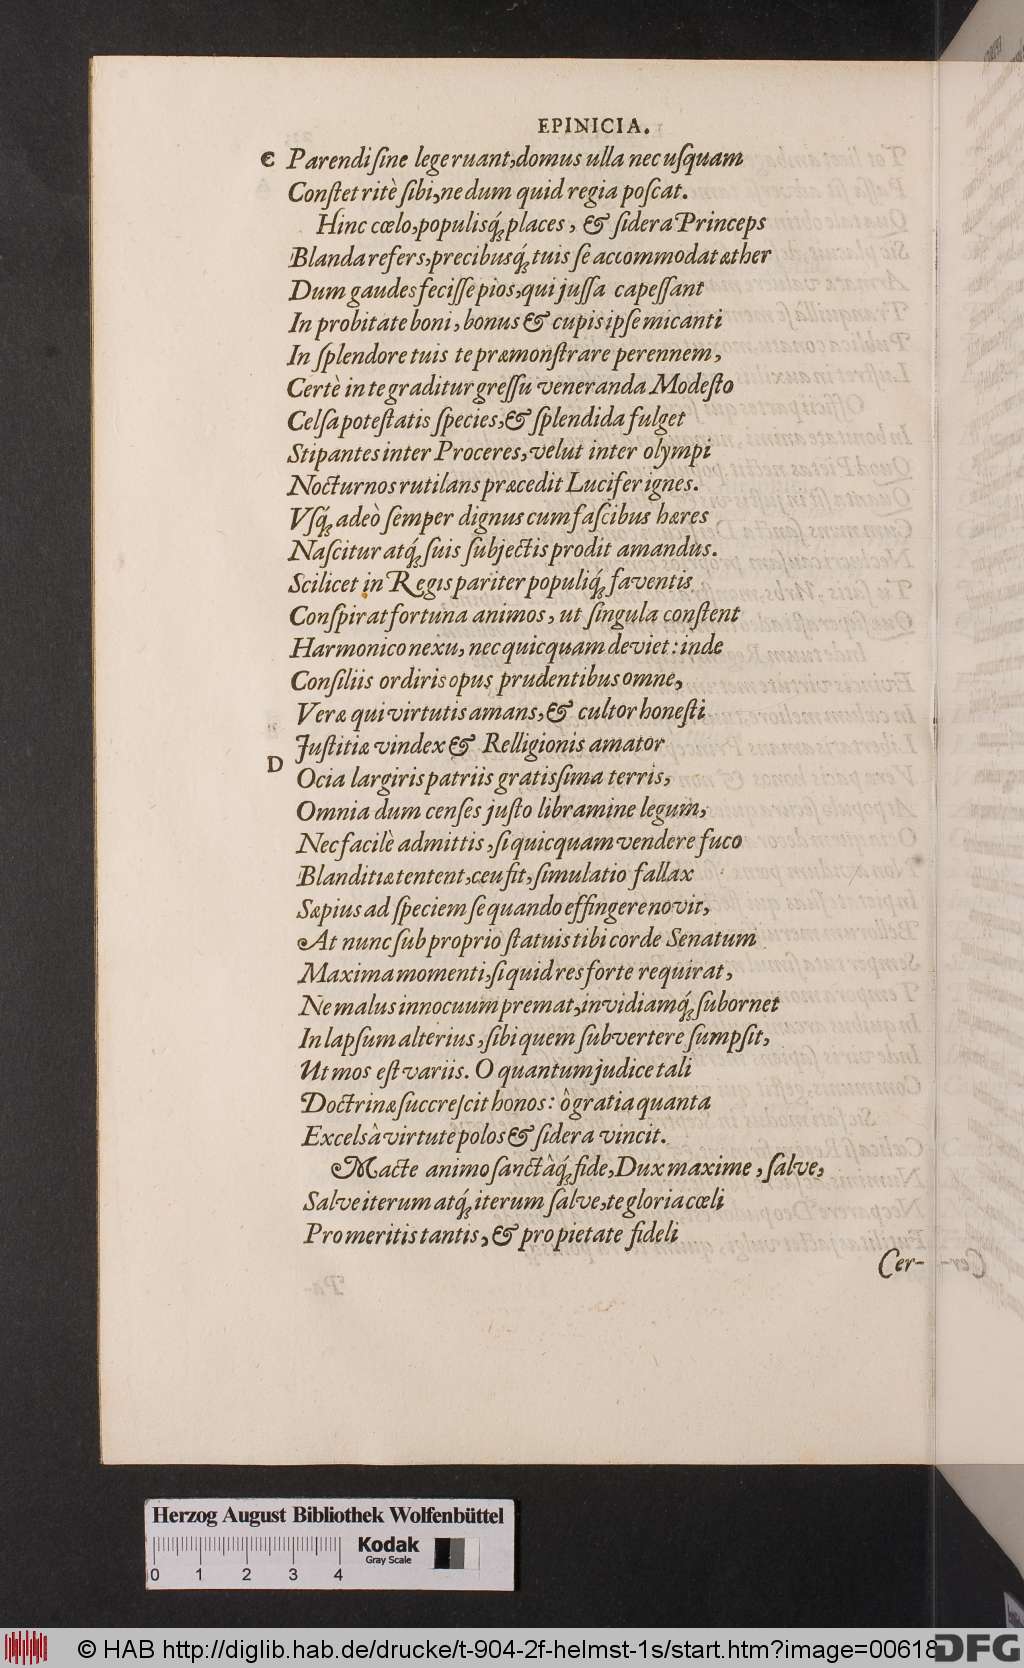 EPINICIA.
C Parendi sine lege ruant, domus ulla nec usquam
Constet ritè sibi, ne dum quid regia poscat.
Hinc cœlo, populisq́; places, & sidera Princeps
Blanda refers, precibusq́; tuis se accommodat æther
Dum gaudes fecisse pios, qui jussa capessant
In probitate boni, bonus & cupis ipse micanti
In splendore tuis te præmonstrare perennem,
Certè in te graditur gressu veneranda Modesto
Celsa potestatis species, & splendida fulget
Stipantes inter Proceres, velut inter olympi
Nocturnos rutilans præcedit Lucifer ignes.
Vsq́; adeò semper dignus cum fascibus hæres
Nascitur atq́; suis subjectis prodit amandus.
Scilicet in Regis pariter populiq́; faventis
Conspirat fortuna animos, ut singula constent
Harmonico nexu, nec quicquam deviet: inde
Consiliis ordiris opus prudentibus omne,
Veræ qui virtutis amans, & cultor honesti
Justitiæ vindex & Relligionis amator
D Ocia largiris patriis gratissima terris,
Omnia dum censes justo libramine legum,
Nec facilè admittis, si quicquam vendere fuco
Blanditiæ tentent, ceu fit, simulatio fallax
Sæpius ad speciem se quando effingere novit,
At nunc sub proprio statuis tibi corde Senatum
Maxima momenti, si quid res forte requirat,
Ne malus innocuum premat, invidiamq́; subornet
In lapsum alterius, sibi quem subvertere sumpsit,
Ut mos est variis. O quantum judice tali
Doctrinæ succrescit honos: ô gratia quanta
Excelsà virtute polos & sidera vincit.
Macte animo sanctàq́; fide, Dux maxime, salve,
Salve iterum atq́; iterum salve, te gloria cœli
Pro meritis tantis, & pro pietate fideli
Cer-
Herzog August Bibliothek Wolfenbüttel
Kodak
Gray Scale
0 1 2 3 4
© HAB http://diglib.hab.de/drucke/t-904-2f-helmst-1s/start.htm?image=00618
DFG